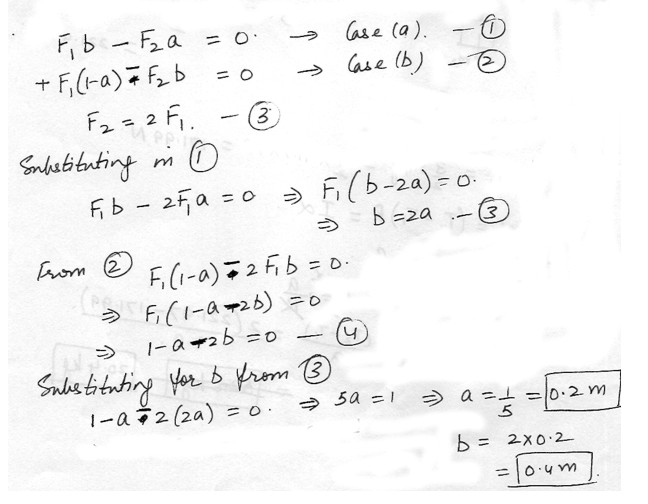 F₁b − F₂a = 0. → Case (a). — ①
+ F₁(1-a) − F₂b = 0 → Case (b) — ②
F₂ = 2F₁. — ③
Substituting in ①
F₁b − 2F₁a = 0 ⇒ F₁(b−2a) = 0.
⇒ b = 2a .— ③
From ② F₁(1-a) − 2F₁b = 0.
⇒ F₁(1-a−2b) = 0
⇒ 1-a−2b = 0 — ④
Substituting for b from ③
1−a − 2(2a) = 0. ⇒ 5a = 1 ⇒ a = 1/5 = 0.2 m
b = 2×0.2
= 0.4 m.